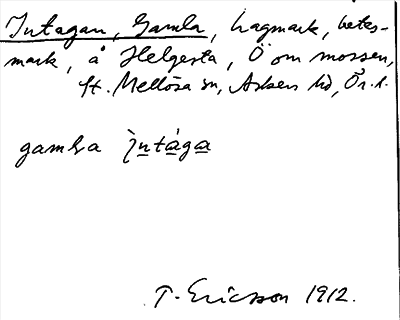 Intagan, Gamla, hagmark, betes-
mark, å Helgesta, Ö om mossen,
St. Mellösa sn, Askers hd, Ör. l.
gamla intaga
T. Ericsson 1912.